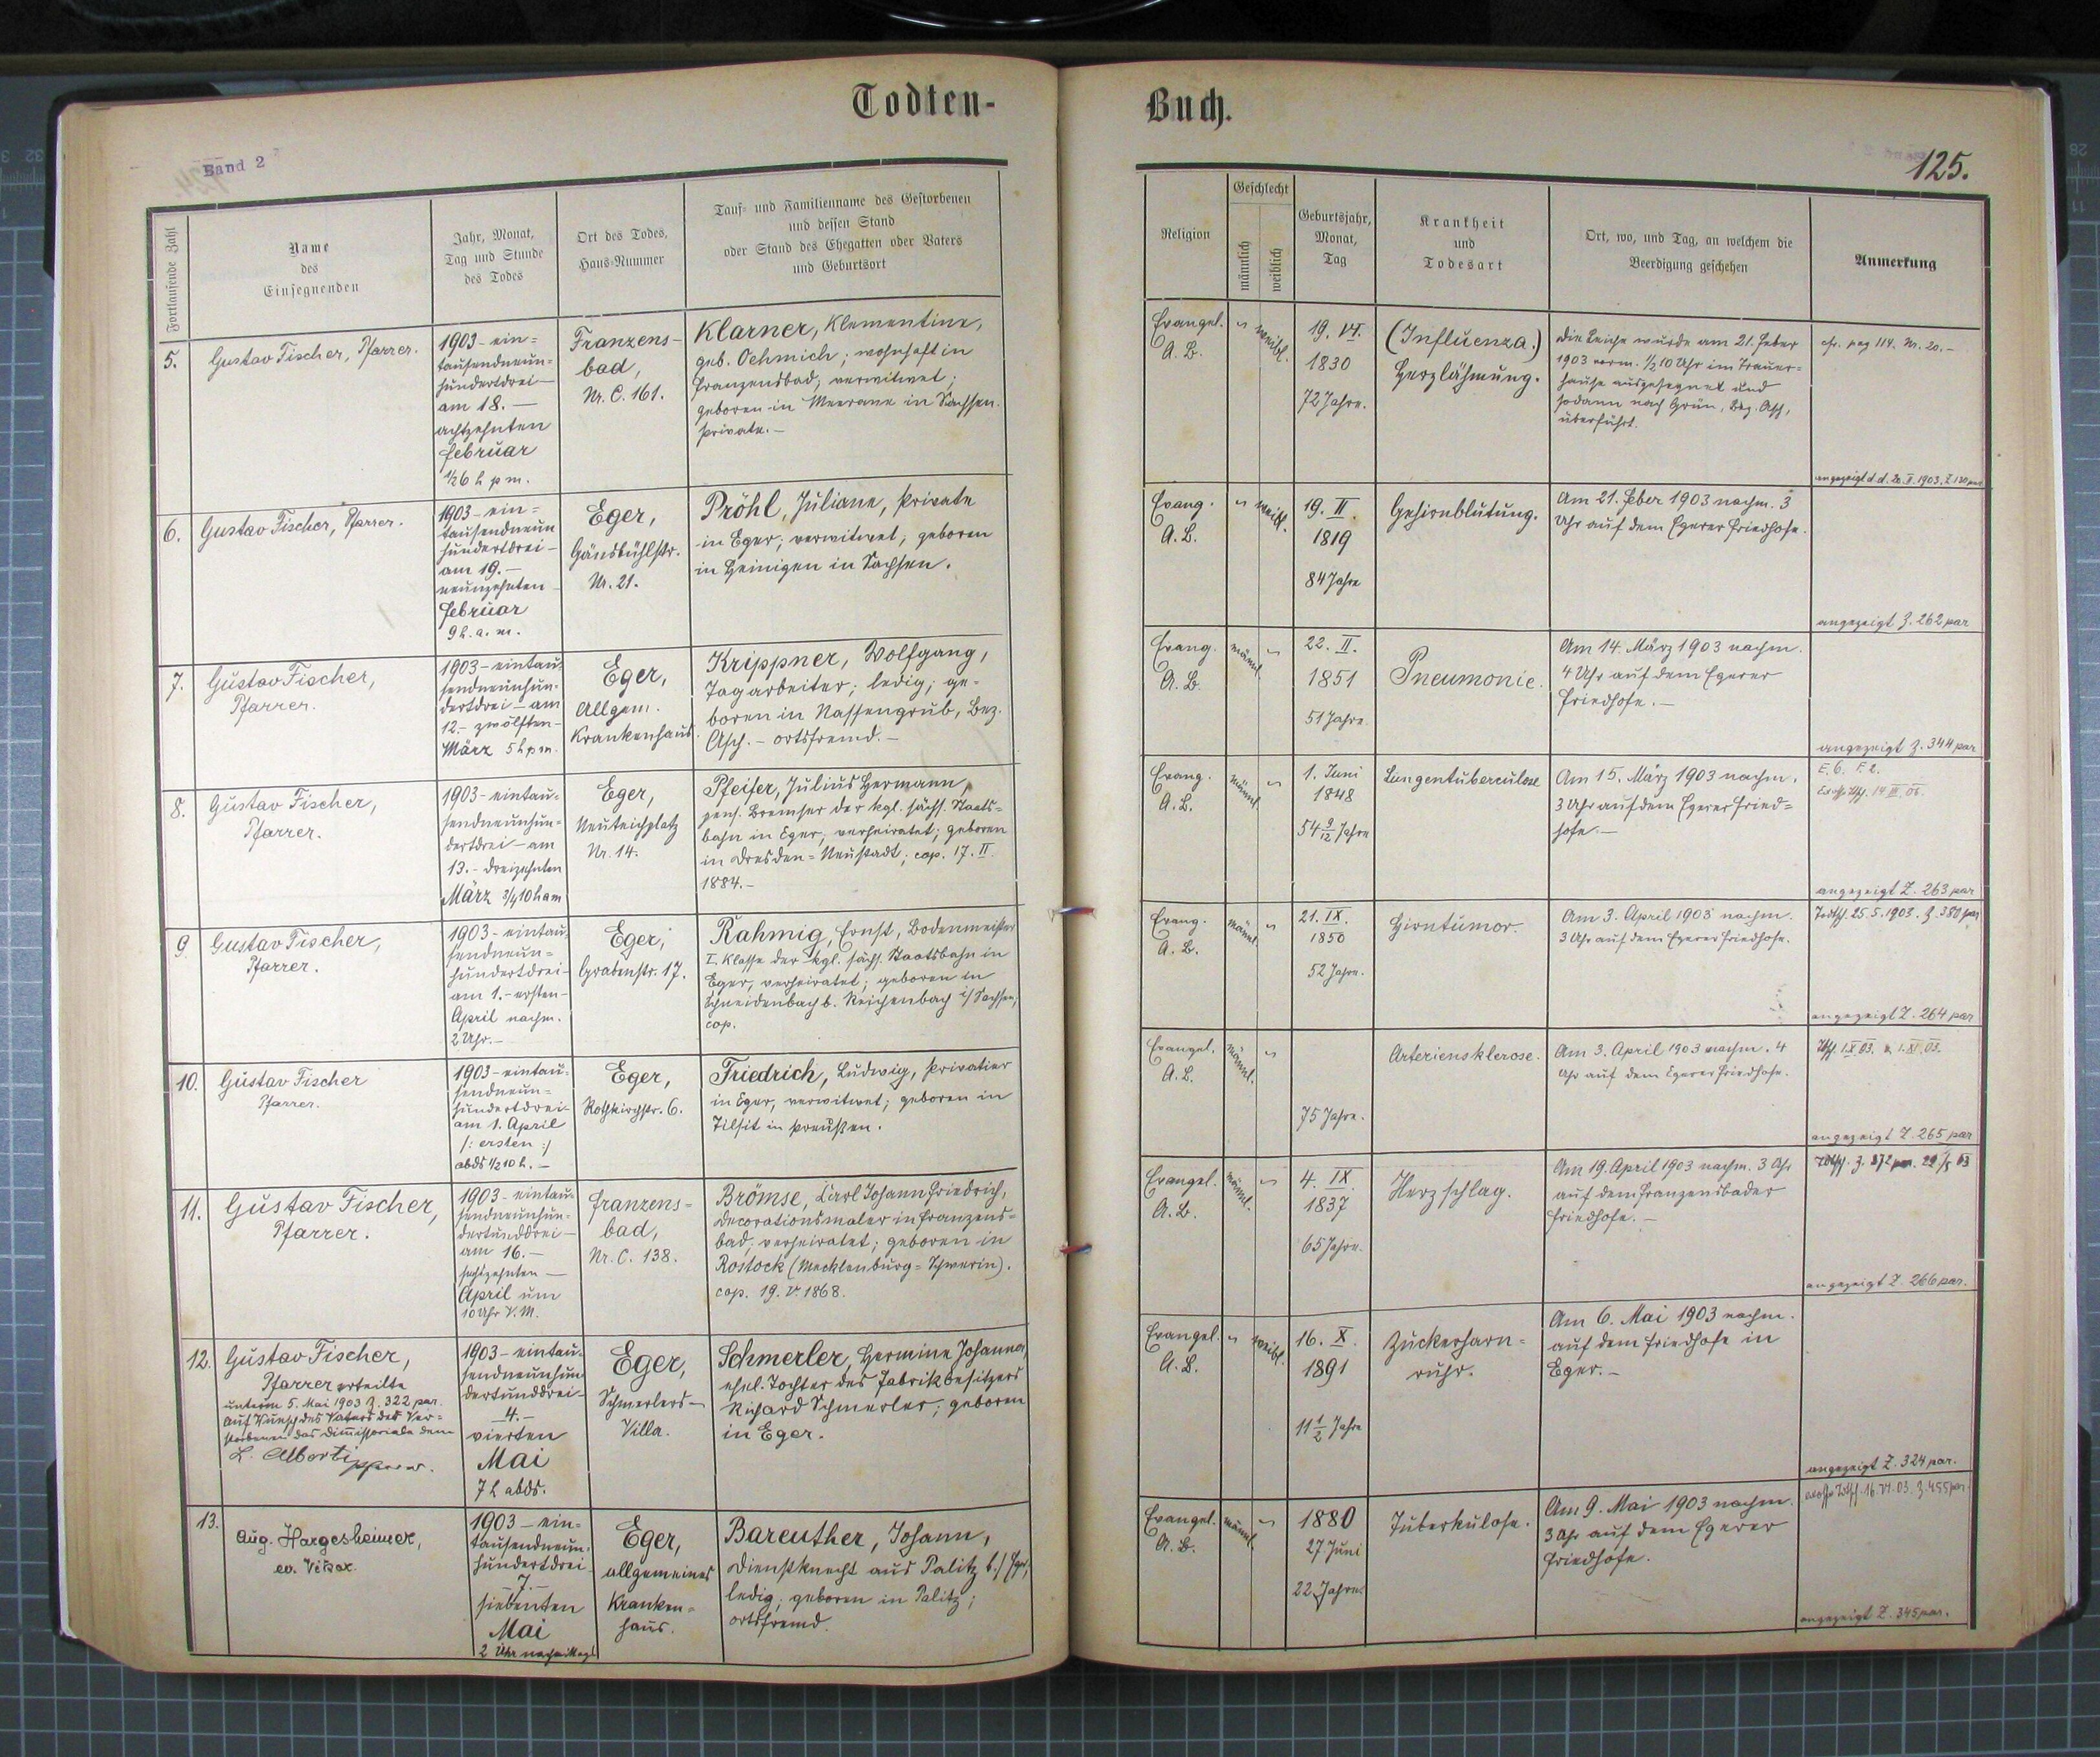 Todten-
Buch.
Band 2
125.
Fortlaufende Zahl
Name
des
Einsegnenden
Jahr, Monat,
Tag und Stunde
des Todes
Ort des Todes,
Haus-Nummer
Tauf- und Familienname des Gestorbenen
und dessen Stand
oder Stand des Ehegatten oder Vaters
und Geburtsort
Religion
Geschlecht
männlich
weiblich
Geburtsjahr,
Monat,
Tag
Krankheit
und
Todesart
Ort, wo, und Tag, an welchem die
Beerdigung geschehen
Anmerkung
5.
Gustav Fischer, Pfarrer.
1903 - ein=
tausendneun=
hundertdrei -
am 18. -
achtzehnten
Februar
1/26 h p m.
Franzens-
bad,
Nr. C. 161.
Klarner, Klementine,
geb. Oehmich; wohnhaft in
Franzensbad; verwitwet;
geboren in Meerane in Sachsen.
Private. -
Evangel.
A. B.
"
weibl.
19. VI.
1830
72 Jahre.
(Influenza.)
Herzlähmung.
Die Leiche wurde am 21. Feber
1903 vorm. 1/2 10 Uhr im Trauer=
hause ausgesegnet und
sodann nach Grün, Bez. Asch,
überführt.
cfr. pag 114. Nr. 20. -
6.
Gustav Fischer, Pfarrer.
1903 - ein=
tausendneun
hundertdrei -
am 19. -
neunzehnten -
Februar
9 h. a. m.
Eger,
Gänsbühlstr.
Nr. 21.
Pröhl, Juliane, Private
in Eger; verwitwet; geboren
in Heinigen in Sachsen.
Evang.
A. B.
"
weibl.
19. II.
1819
84 Jahre
Gehirnblutung.
Am 21. Feber 1903 nachm. 3
Uhr auf dem Egerer Friedhofe.
angezeigt Z. 262 par
7.
Gustav Fischer,
Pfarrer.
1903 - eintau=
sendneunhun=
dertdrei - am
12. - zwölften -
März 5 h p m.
Eger,
Allgem.
Krankenhaus.
Krippner, Wolfgang,
Tagarbeiter; ledig; ge=
boren in Nassengrub, Bez.
Asch. - ortsfremd. -
Evang.
A. B.
männl.
"
22. II.
1851
51 Jahre.
Pneumonie.
Am 14. März 1903 nachm.
4 Uhr auf dem Egerer
Friedhofe. -
angezeigt Z. 344 par
8.
Gustav Fischer,
Pfarrer.
1903 - eintau=
sendneunhun=
dertdrei - am
13. - dreizehnten
März 3/4 10 h am
Eger,
Neuteichplatz
Nr. 14.
Pfeifer, Julius Hermann,
pens. Bremser der kgl. sächs. Staats=
bahn in Eger; verheiratet; geboren
in Dresden=Neustadt; cop. 17. II.
1884. -
Evang.
A. B.
männl.
"
1. Juni
1848
54 9/12 Jahre
Lungentuberculose
Am 15. März 1903 nachm.
3 Uhr auf dem Egerer Fried=
hofe. -
angezeigt Z. 263 par
9
Gustav Fischer,
Pfarrer.
1903 - eintau=
sendneun=
hundertdrei -
am 1. - ersten -
April nachm.
2 Uhr. -
Eger,
Grabenstr. 17.
Rahmig, Ernst, Bodenmeister
I. Klasse der kgl. sächs. Staatsbahn in
Eger, verheiratet; geboren in
Schneidenbach b. Reichenbach i/ Sachsen;
cop.
Evang.
A. B.
männl.
"
21. IX.
1850
52 Jahre.
Hirntumor.
Am 3. April 1903 nachm.
3 Uhr auf dem Egerer Friedhofe.
Todtsch. 25. 5. 1903. Z. 380 par
angezeigt Z. 264 par
10.
Gustav Fischer
Pfarrer.
1903 - eintau=
sendneun=
hundertdrei -
am 1. April
/: ersten :/
abds 1/2 10 h. -
Eger,
Rothkirchstr. 6.
Friedrich, Ludwig, Privatier
in Eger, verwitwet; geboren in
Tilsit in Preußen.
Evangel.
A. B.
männl.
"
75 Jahre.
Arteriensklerose.
Am 3. April 1903 nachm. 4
Uhr auf dem Egerer Friedhofe.
angezeigt Z. 265 par
11.
Gustav Fischer,
Pfarrer.
1903 - eintau=
sendneunhun=
dertunddrei -
am 16. -
sechzehnten -
April um
10 Uhr V. M.
Franzens=
bad,
Nr. C. 138.
Brömse, Carl Johann Friedrich,
Decorationsmaler in Franzens=
bad; verheiratet; geboren in
Rostock (Mecklenburg=Schwerin).
cop. 19. V. 1868.
Evangel.
A. B.
männl.
"
4. IX.
1837
65 Jahre.
Herzschlag.
Am 19. April 1903 nachm. 3 Uhr
auf dem Franzensbader
Friedhofe. -
angezeigt Z. 266 par.
12.
Gustav Fischer,
Pfarrer erteilte
unterm 5. Mai 1903 Z. 322 par.
auf Wunsch des Vaters der Ver=
storbenen das Dimissoriale dem
L. Alberti
1903 - eintau=
sendneunhun
dertunddrei -
4. -
vierten
Mai
7 h abds.
Eger,
Schmerlers -
Villa.
Schmerler, Hermine Johanna,
ehel. Tochter des Fabriksbesitzers
Richard Schmerler; geboren
in Eger.
Evangel.
A. B.
"
weibl.
16. X.
1891
11 1/2 Jahre
Zuckerharn=
ruhr.
Am 6. Mai 1903 nachm.
auf dem Friedhofe in
Eger. -
angezeigt Z. 324 par.
13.
Aug. Hargesheimer,
ev. Vikar.
1903 - ein=
tausendneun=
hundertdrei
- 7. -
siebenten
Mai
2 Uhr nachmittags
Eger,
allgemeines
Kranken=
haus.
Bareuther, Johann,
Dienstknecht aus Palitz b./ Eger,
ledig; geboren in Palitz;
ortsfremd.
Evangel.
A. B.
männl.
"
1880
27. Juni
22 Jahre.
Tuberkulose.
Am 9. Mai 1903 nachm.
3 Uhr auf dem Egerer
Friedhofe.
angezeigt Z. 345 par.